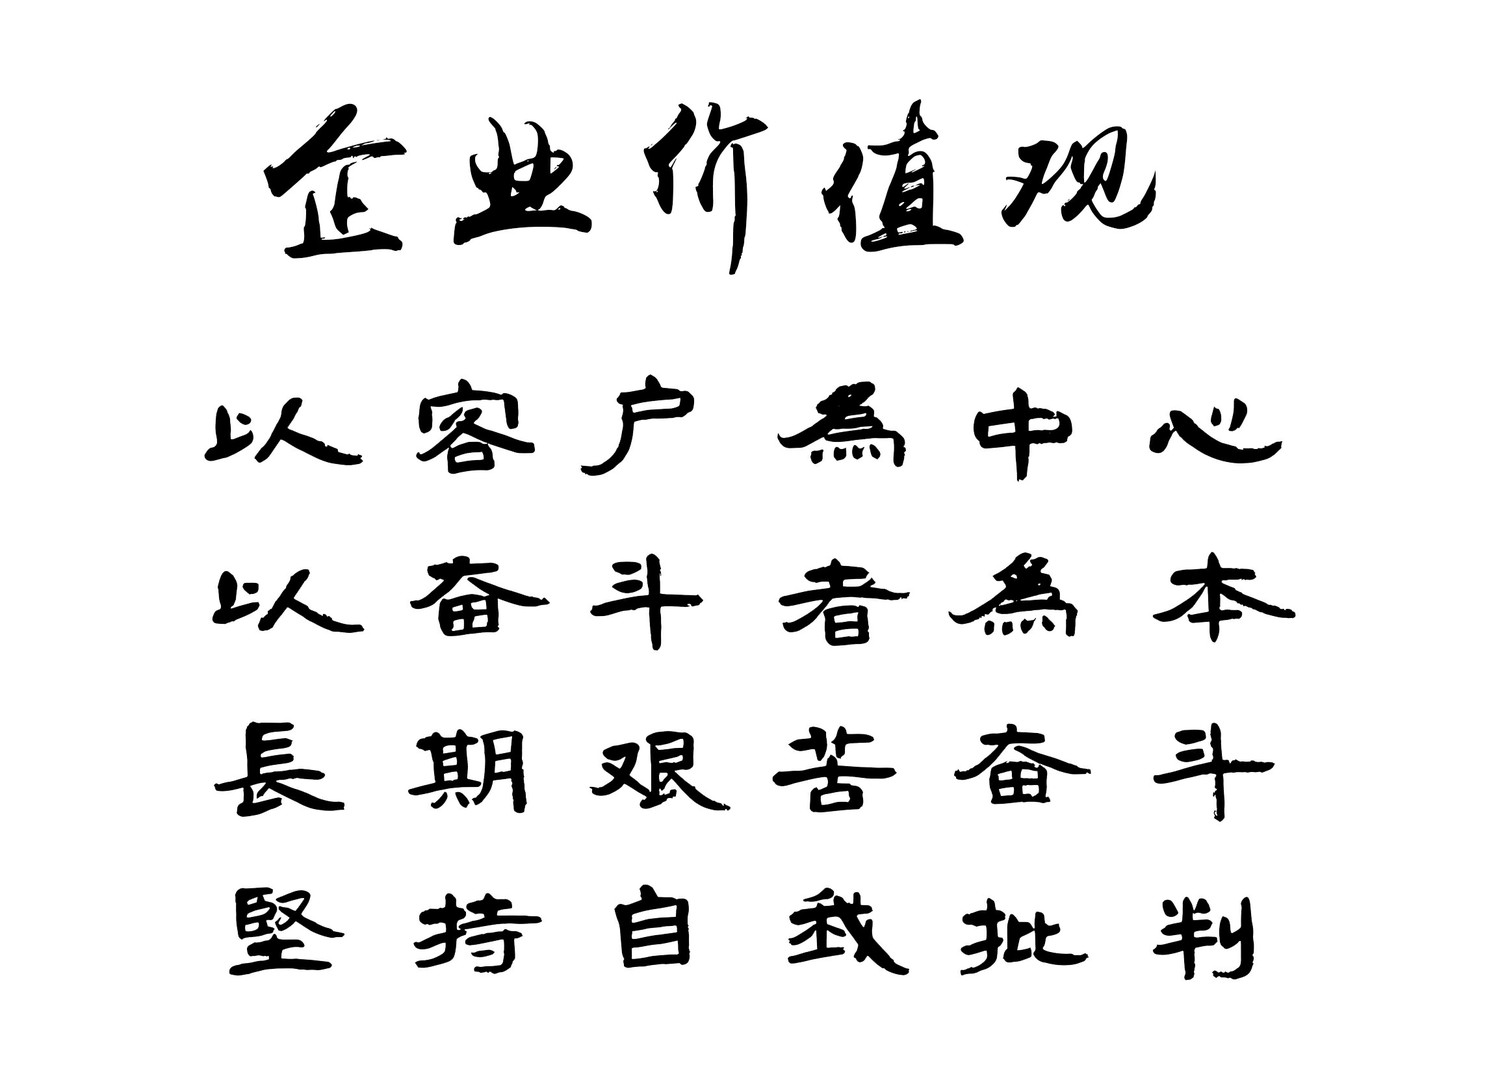 企业价值观
以客户為中心
以奋斗者為本
長期艰苦奋斗
堅持自我批判